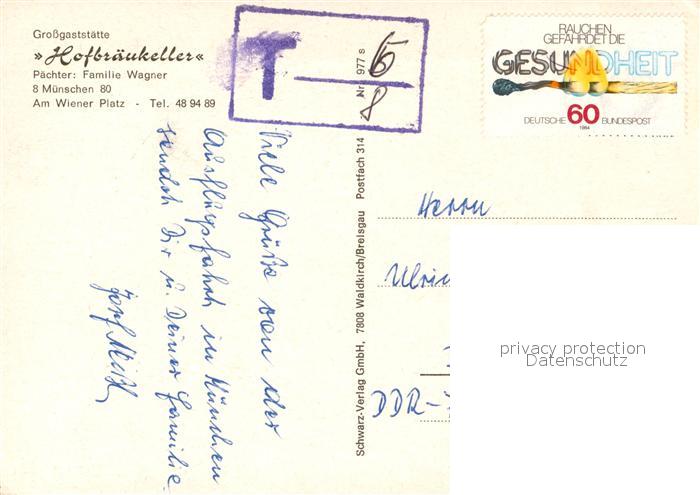 Großgaststätte
»Hofbräukeller«
Pächter: Familie Wagner
8 Münschen 80
Am Wiener Platz - Tel. 48 94 89
T
6
8
RAUCHEN
GEFÄHRDET DIE
GESUNDHEIT
DEUTSCHE 60 BUNDESPOST
1984
Viele Grüße von der
Ausflugsfahrt in München
sendet Dir u. Deiner Familie
Josef
Schwarz-Verlag GmbH, 7808 Waldkirch/Breisgau Postfach 314 Nr. 977 s
Herrn
Ulric
DDR-
privacy protection
Datenschutz